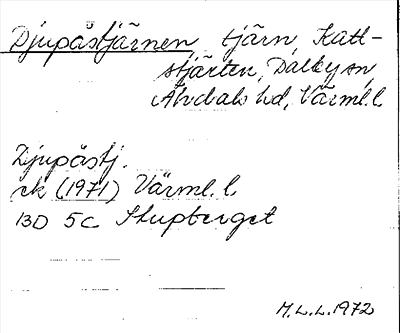 Djupåstjärnen, tjärn, Katt-
stjärten, Dalby sn,
Älvdals hd, Värml. l.
Djupåstj.
ek (1971) Värml. l.
13D 5c Stupberget
M.L.L. 1972